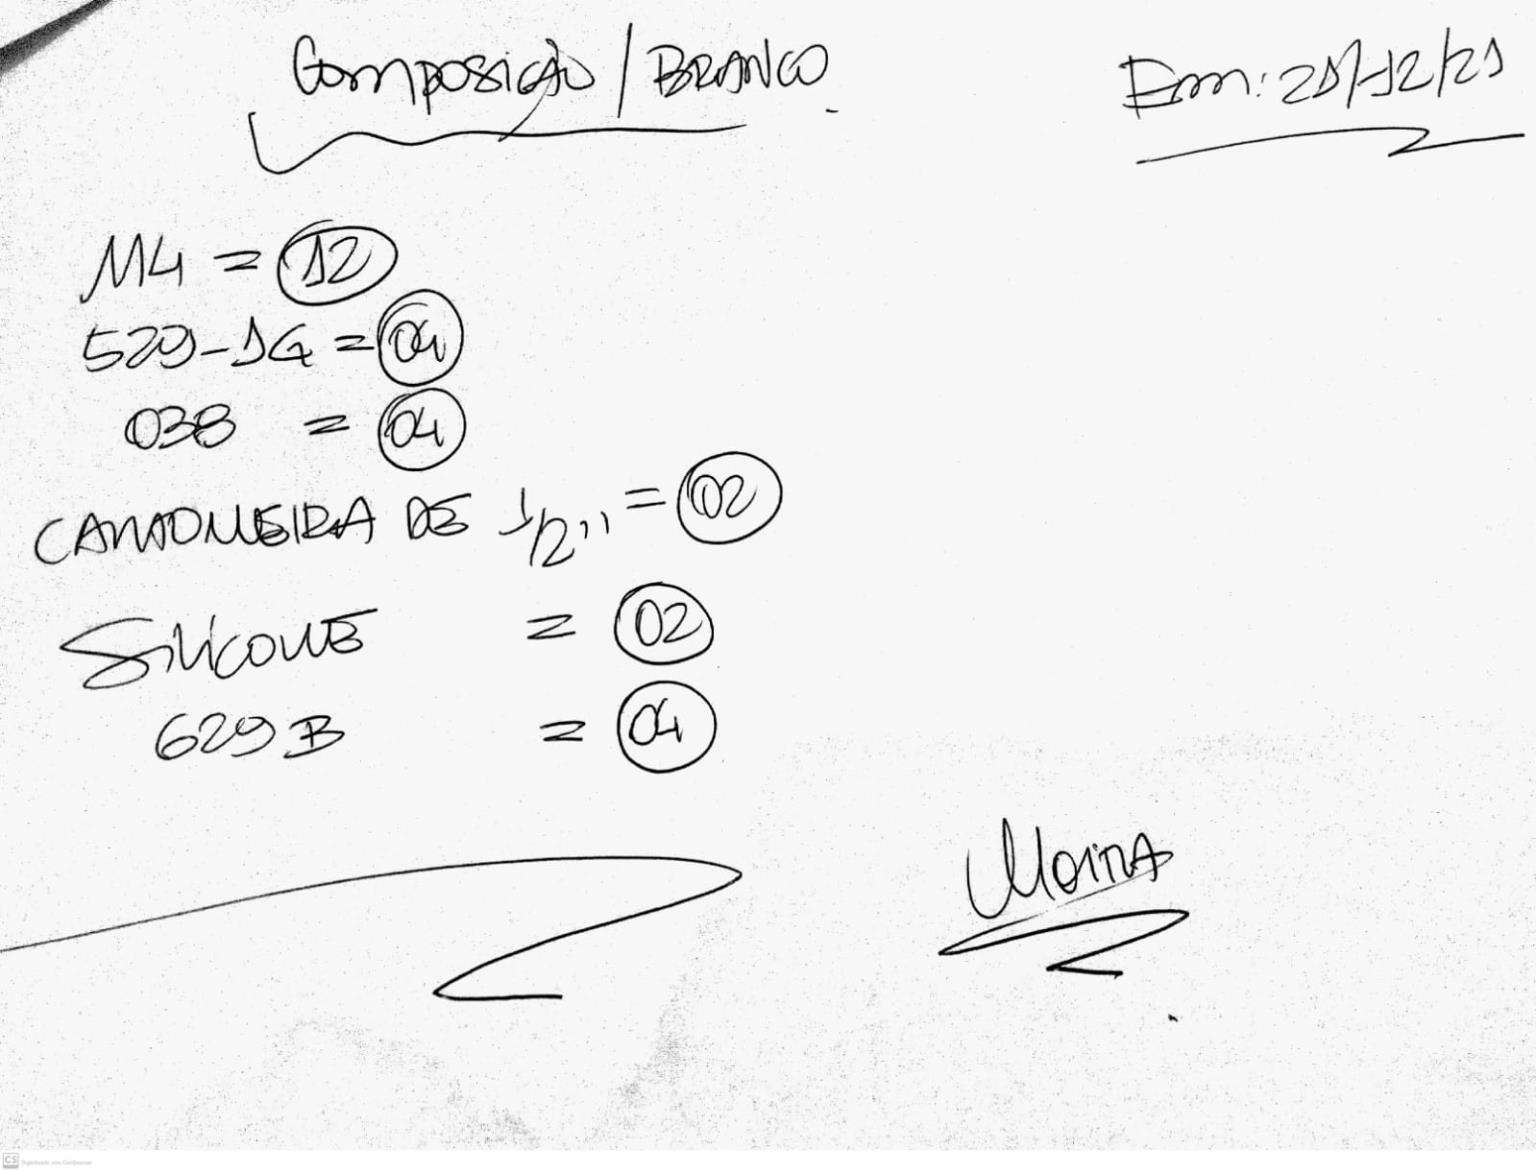 Composição / BRANCO.
Em: 21/12/21
M4 = 12
529-1G = 04
038 = 04
CANTONEIRA DE 1/2'' = 02
SILICONE = 02
629B = 04
MOIRA
CS Digitalizado com CamScanner